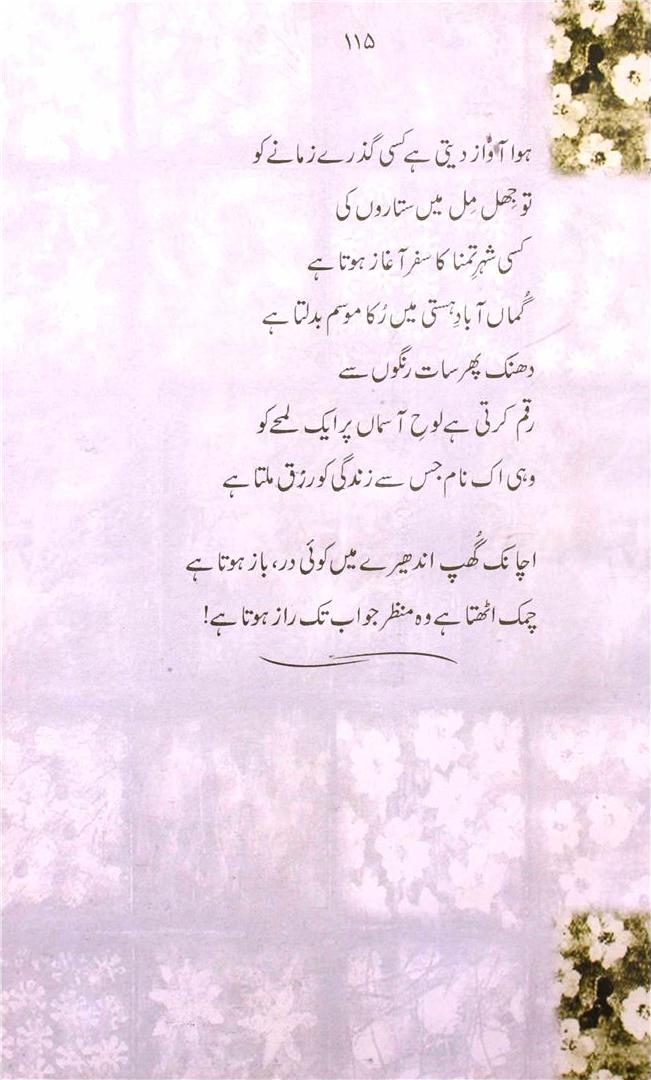 ۱۱۵
ہوا آواز دیتی ہے کسی گذرے زمانے کو
تو جِھل مِل میں ستاروں کی
کسی شہرِ تمنا کا سفر آغاز ہوتا ہے
گُماں آبادِ ہستی میں رُکا موسم بدلتا ہے
دھنک پھر سات رنگوں سے
رقم کرتی ہے لوحِ آسماں پر ایک لمحے کو
وہی اک نام جس سے زندگی کو رزق ملتا ہے
اچانک گُھپ اندھیرے میں کوئی در، باز ہوتا ہے
چمک اٹھتا ہے وہ منظر جو اب تک راز ہوتا ہے!